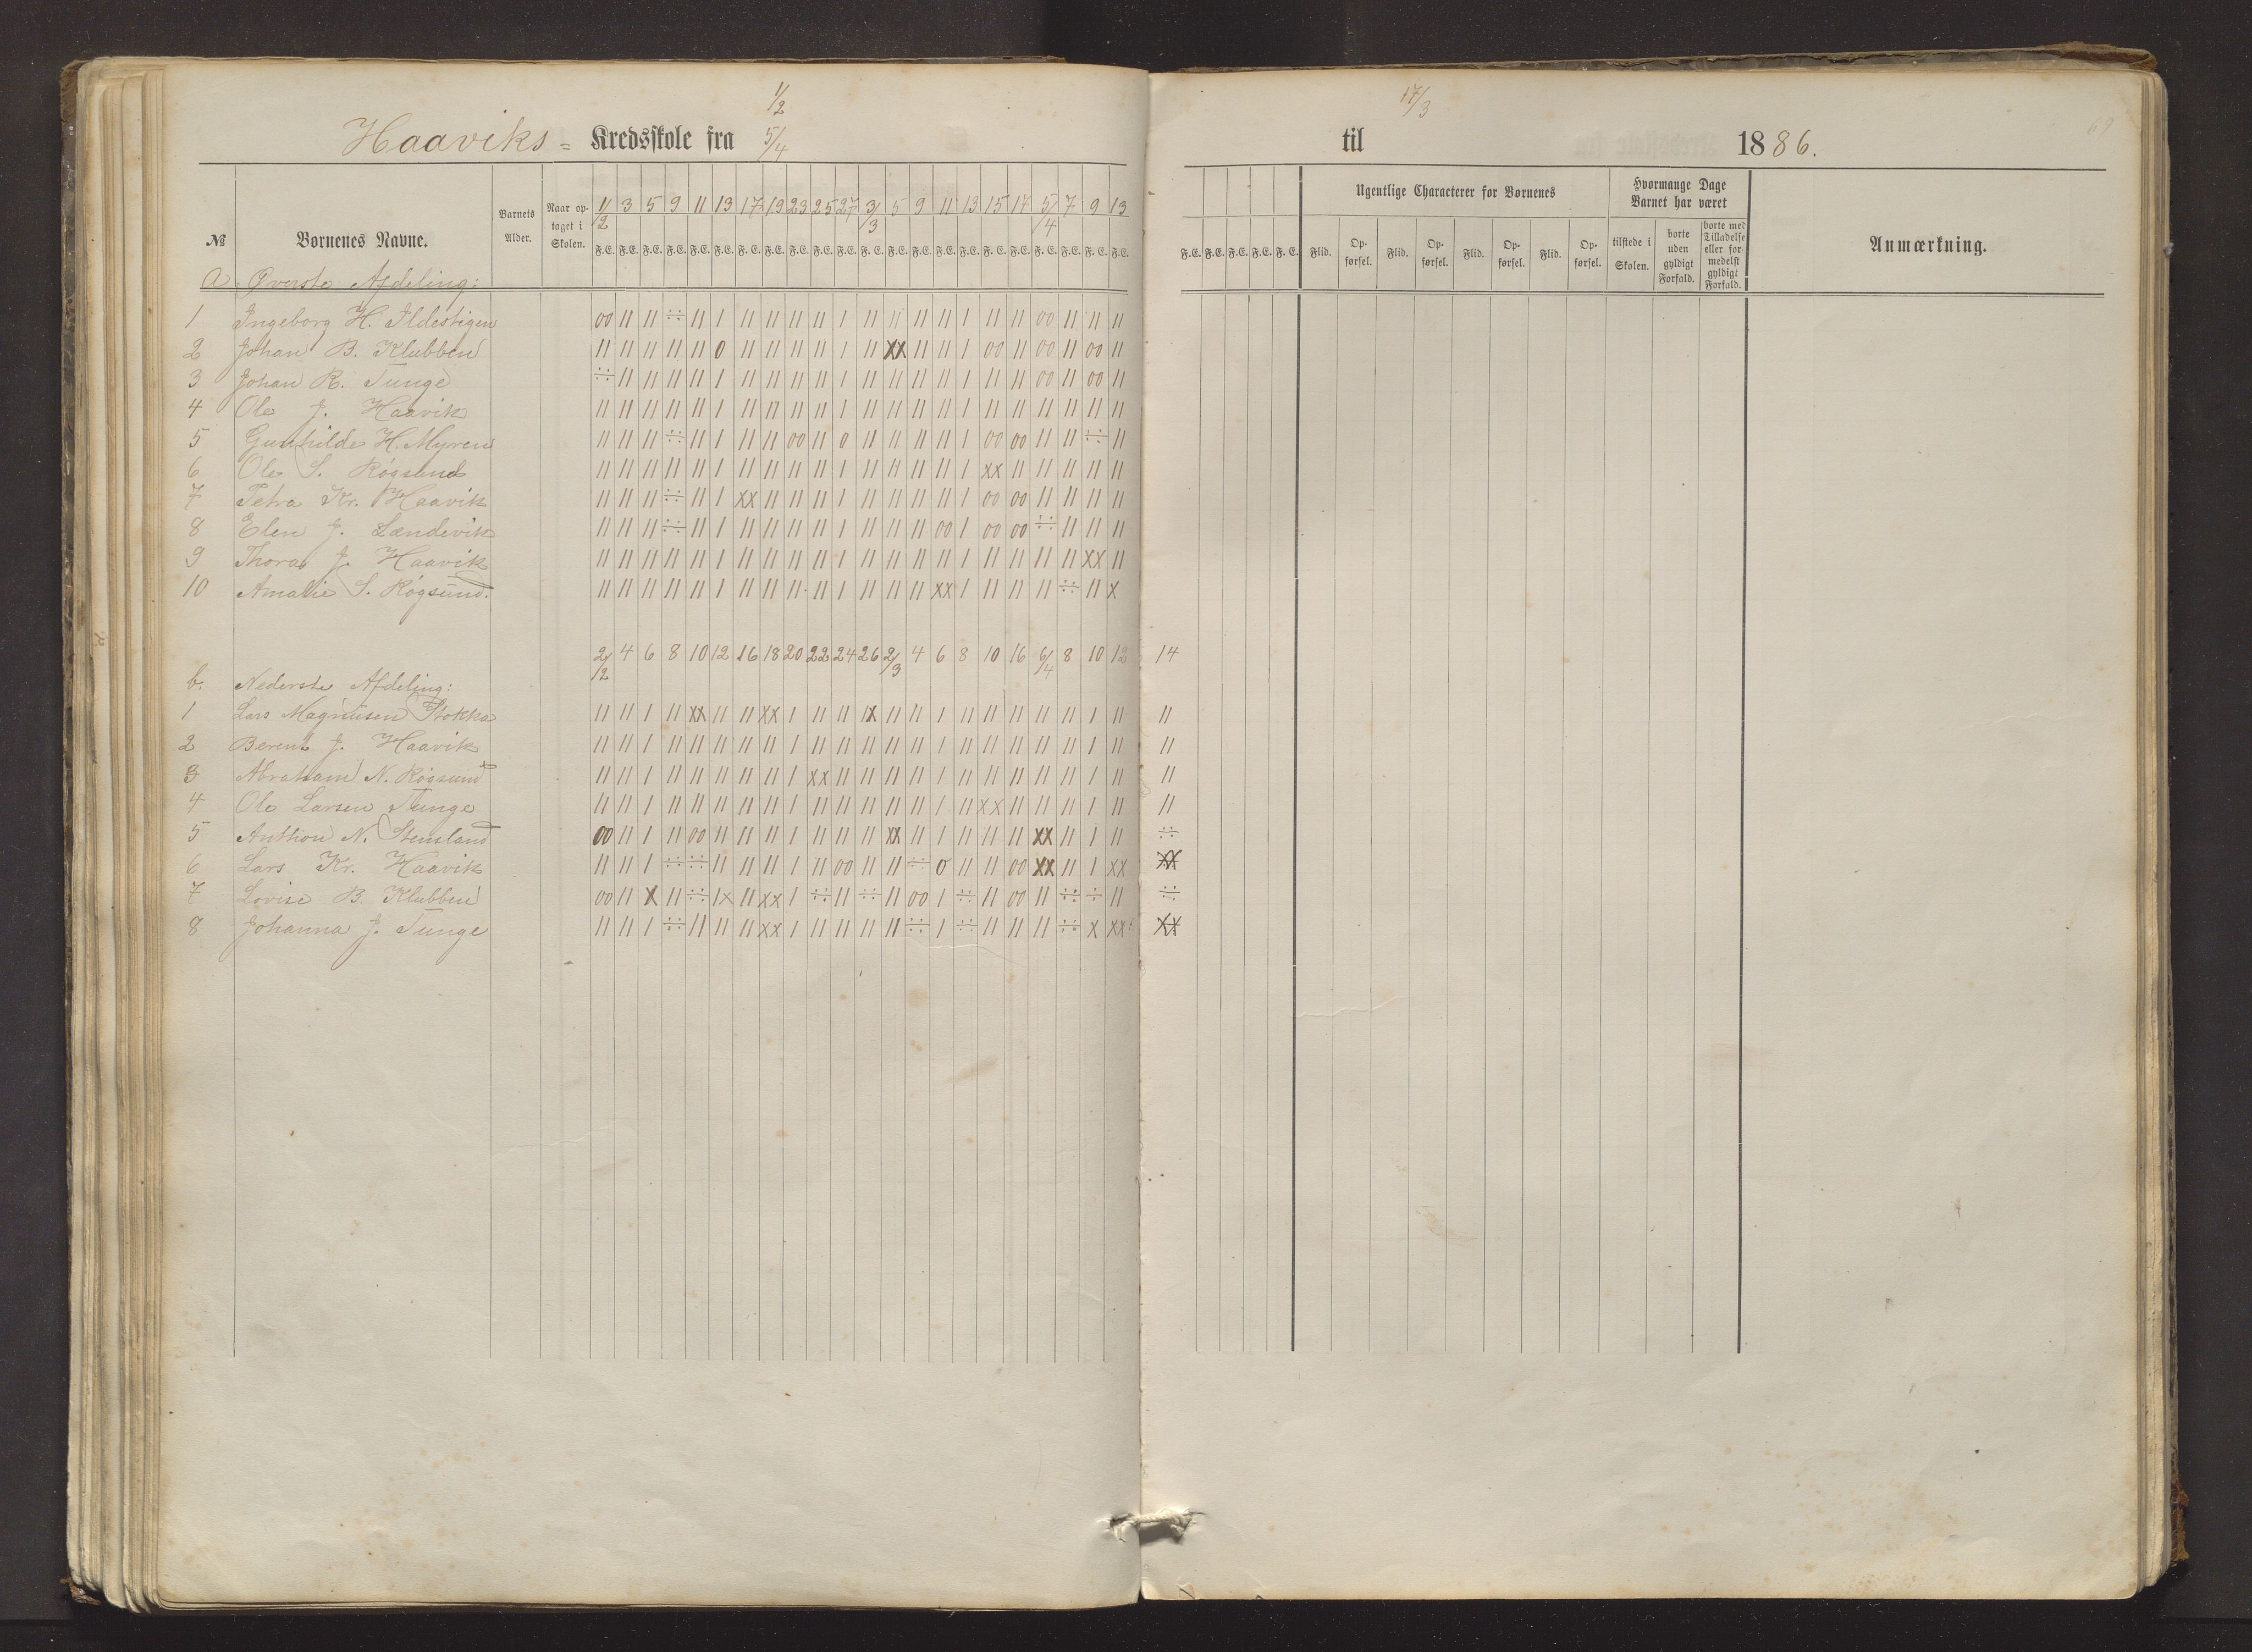 1/2 17/3
Haaviks = Kredsskole fra 5/4 til 1886.
69
№ Børnenes Navne. Barnets Alder. Naar optaget i Skolen. 1/2 3 5 9 11 13 17 19 23 25 27 3/3 5 9 11 13 15 17 5/4 7 9 13
F.E. F.E. F.E. F.E. F.E. F.E. F.E. F.E. F.E. F.E. F.E. F.E. F.E. F.E. F.E. F.E. F.E. F.E. F.E. F.E. F.E. F.E. F.E. F.E. F.E. F.E. F.E.
Ugentlige Characterer for Børnenes
Flid. Opførsel. Flid. Opførsel. Flid. Opførsel. Flid. Opførsel.
Hvormange Dage Barnet har været
tilstede i Skolen. borte uden gyldigt Forfald. borte med Tilladelse eller formedelst gyldigt Forfald.
Anmærkning.
a. Øverste Afdeling:
1 Ingeborg H. Ildestigen 00 11 11 ÷ 11 1 11 11 11 11 1 11 11 11 11 1 11 11 00 11 11 11
2 Johan B. Klubben 11 11 11 11 11 0 11 11 11 11 1 11 xx 11 11 1 00 11 00 11 00 11
3 Johan R. Tunge ÷ 11 11 11 11 1 11 11 11 11 1 11 11 11 11 1 11 11 00 11 00 11
4 Ole J. Haavik 11 11 11 11 11 1 11 11 11 11 1 11 11 11 11 1 11 11 11 11 11 11
5 Gunhilde H. Myren 11 11 11 ÷ 11 1 11 11 00 11 0 11 11 11 11 1 00 00 11 11 ÷ 11
6 Ole S. Røgsund 11 11 11 11 11 1 11 11 11 11 1 11 11 11 11 1 xx 11 11 11 11 11
7 Petra Kr. Haavik 11 11 11 ÷ 11 1 xx 11 11 11 1 11 11 11 11 1 00 00 11 11 11 11
8 Elen J. Lændevik 11 11 11 ÷ 11 1 11 11 11 11 1 11 11 11 00 1 00 00 ÷ 11 11 11
9 Thora J. Haavik 11 11 11 11 11 1 11 11 11 11 1 11 11 11 11 1 11 11 11 11 xx 11
10 Amalie S. Røgsund. 11 11 11 11 11 1 11 11 11 11 1 11 11 11 xx 1 11 11 11 ÷ 11 x
2/2 4 6 8 10 12 16 18 20 22 24 26 2/3 4 6 8 10 16 6/4 8 10 12 14
b. Nederste Afdeling:
1 Lars Magnusen Stokka 11 11 1 11 xx 11 11 xx 1 11 11 1x 11 11 1 11 11 11 11 11 1 11 11
2 Berent J. Haavik 11 11 1 11 11 11 11 11 1 11 11 11 11 11 1 11 11 11 11 11 1 11 11
3 Abraham N. Røgsund 11 11 1 11 11 11 11 11 1 xx 11 11 11 11 1 11 11 11 11 11 1 11 11
4 Ole Larsen Tunge 11 11 1 11 11 11 11 11 1 11 11 11 11 11 1 11 xx 11 11 11 1 11 11
5 Anthon N. Stensland 00 11 1 11 00 11 11 11 1 11 11 11 xx 11 1 11 11 11 xx 11 1 11 ÷
6 Lars Kr. Haavik 11 11 1 ÷ ÷ 11 11 11 1 11 00 11 11 ÷ 0 11 11 00 xx 11 1 xx xx
7 Lovise B. Klubben 00 11 x 11 ÷ 1x 11 xx 1 ÷ 11 ÷ 11 00 1 ÷ 11 00 11 ÷ ÷ 11 ÷
8 Johanna J. Tunge 11 11 1 ÷ 11 11 11 xx 1 11 11 11 11 ÷ 1 ÷ 11 11 11 ÷ x xx xx